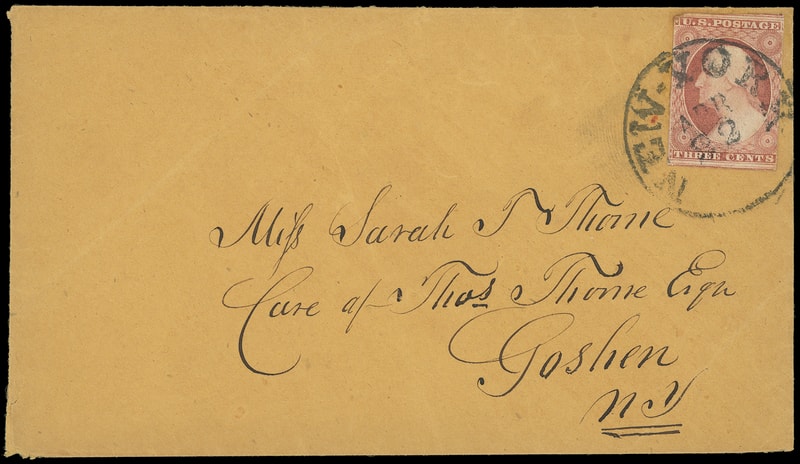 U.S. POSTAGE
THREE CENTS
NEW-YORK
APR
2
Miss Sarah T Thorne
Care of Thos Thorne Esqr
Goshen
NY